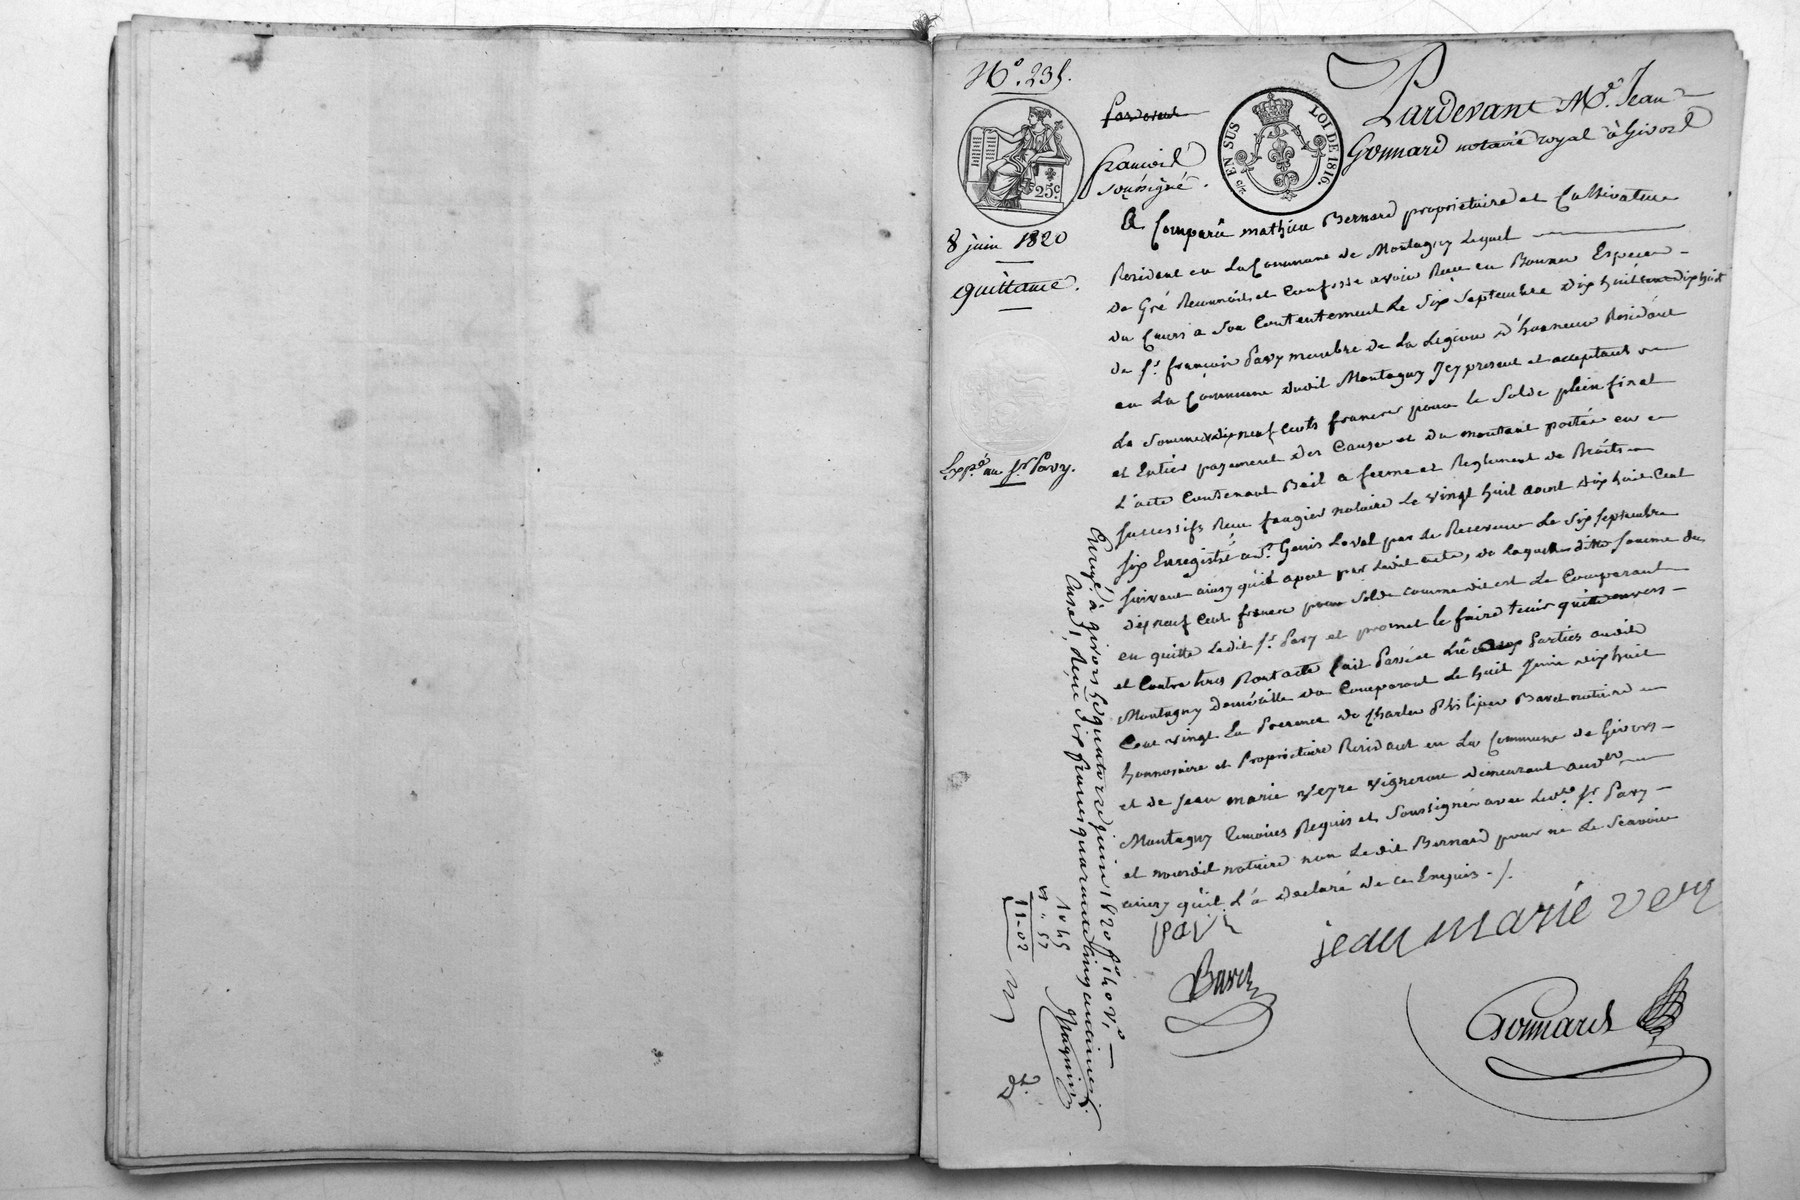 N.º 235.
Pardevant
EN SUS
LOI DE 1816.
25 c.
Pardevant M.e Jean
Gonnard notaire royal à Givors
soussigné.
8 juin 1820
quittance.
Expé au Sr Pavy.
A Comparû mathieu Bernard proprietaire et Cultivateur
Resident en La Commune de Montagny Lequel
de Gré Reconnoit et Confesse avoir Reçu en Bonnes Especes
du Cours a Son Contentement Le Six Septembre dix huit cent dix huit
de Sr françois Pavy membre de La Legion d'honneur Residant
en La Commune dudit Montagny Icy present et acceptant
La Somme de dix neuf Cents francs pour le Solde plein final
et Entier payement des Causes et du montant portée en
L'acte Contenant Bail a ferme et Reglement de Droits
Successifs Reçu fougier notaire Le vingt huit aout dix huit Cent
Six Enregistré a St Genis Laval par Le Receveur Le Six Septembre
Suivant ainsy qu'il apert par Ledit acte, de Laquelle ditte Somme de
dix neuf Cent francs pour Solde comme dit est Le Comparant
en quitte Ledit Sr Pavy et promet le faire tenir quitte envers
et Contre tous Dont acte fait Passé et Lû aux Parties audit
Montagny Domicille du Comparant Le huit Juin dix huit
Cent vingt En Presence de Charles Philipes Baret notaire
honnoraire et Proprietaire Residant en La Commune de Givors
et de Jean marie veyre vigneron demeurant audit
Montagny temoins Requis et Soussignés avec Ledit Sr Pavy
et nousdit notaire non Ledit Bernard pour ne Le Scavoir
ainsy qu'il L'a Declaré de ce Enquis ./.
pavi
jean marie veyr
Baret
Gonnard
Enregé à givors le quatorze juin 1820 fo 140 vo
Case 1, reçu dix francs quarante cinq centimes
11-02